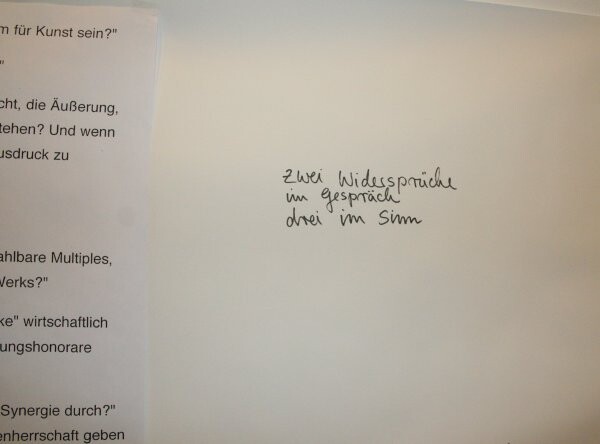 m für Kunst sein?"
"
cht, die Äußerung,
tehen? Und wenn
usdruck zu
ahlbare Multiples,
Werks?"
ke" wirtschaftlich
ungshonorare
Synergie durch?"
enherrschaft geben
zwei Widersprüche
im Gespräch
drei im Sinn